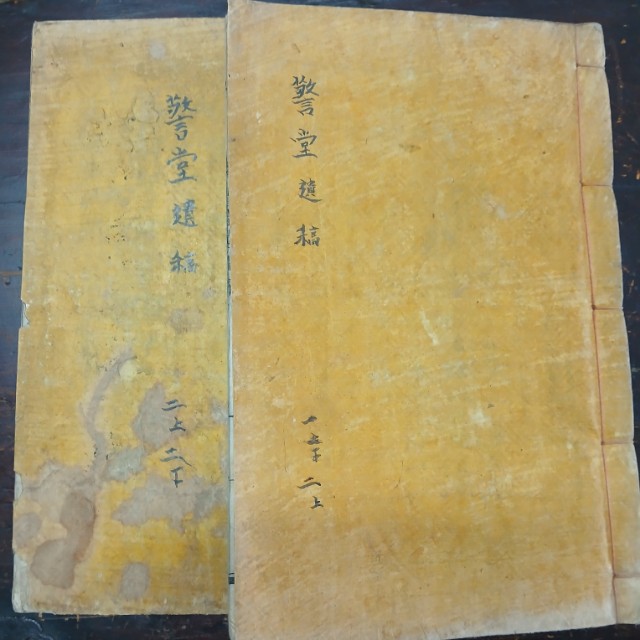 警堂遺稿
一 下 二上
警堂遺稿
二上 二下